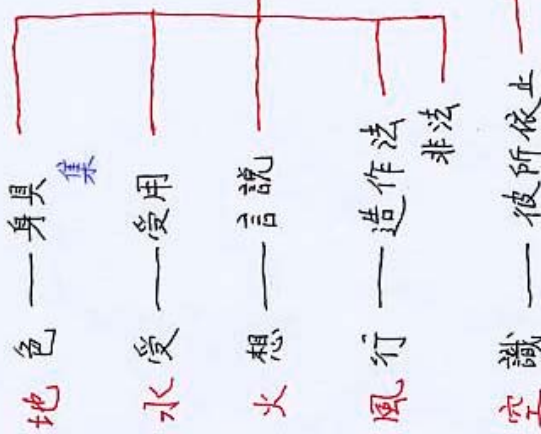 地 色 — 身具
集
水 受 — 受用
火 想 — 言說
風 行 — 造作法
非法
空 識 — 彼所依止